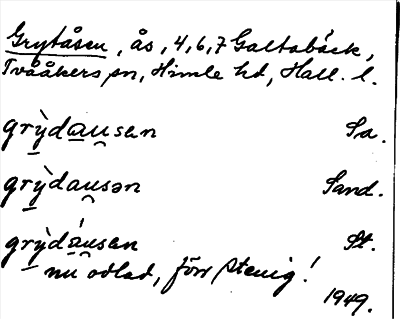 Grytåsen, ås, 4,6,7 Galtabäck,
Tvååkers sn, Himle hd, Hall. l.
grỳdausen Sa.
grỳdausən Sand.
grỳdáusen St.
nu odlad, förr stenig!
1949.